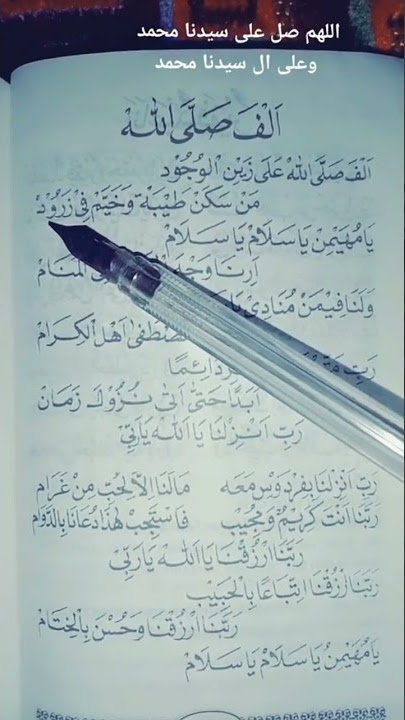 اللهم صل على سيدنا محمد
وعلى ال سيدنا محمد
اَلْفَ صَلَّى اللّٰهُ
اَلْفَ صَلَّى اللّٰهُ عَلَى زَيْنِ الْوُجُوْدِ
مَنْ سَكَنْ طَيْبَةْ وَخَيَّمْ فِيْ زَرُوْدْ
يَا مُهَيْمِنْ يَا سَلَامْ يَا سَلَامْ
اَرِنَا الْمَنَامْ
وَلَنَا فِيْمَنْ مُنَادِيْ
اَهْلِ الْكِرَامْ
رَبِّ دَائِمًا
اَبَدًا حَتَّى اِلَى نُزُوْلِ زَمَانْ
رَبِّ اَنْزِلْنَا يَا اَللّٰه يَارَبِّيْ
رَبِّ اَنْزِلْنَا بِفِرْدَوْسْ مَعَه مَالَنَا اِلَّا لِحُبّ مِنْ غَرَامْ
رَبَّنَا اَنْتَ كَرِيْمٌ وَمُجِيْبْ فَاسْتَجِبْ هٰذَا دُعَانَا بِالدَّوَامْ
رَبَّنَا رْزُقْنَا يَا اَللّٰه يَارَبِّيْ
رَبَّنَا رْزُقْنَا اتِّبَاعًا بِالْحَبِيْبْ
رَبَّنَا ارْزُقْنَا وَحُسْنَ بِالْخِتَامْ
يَا مُهَيْمِنْ يَا سَلَامْ يَا سَلَامْ